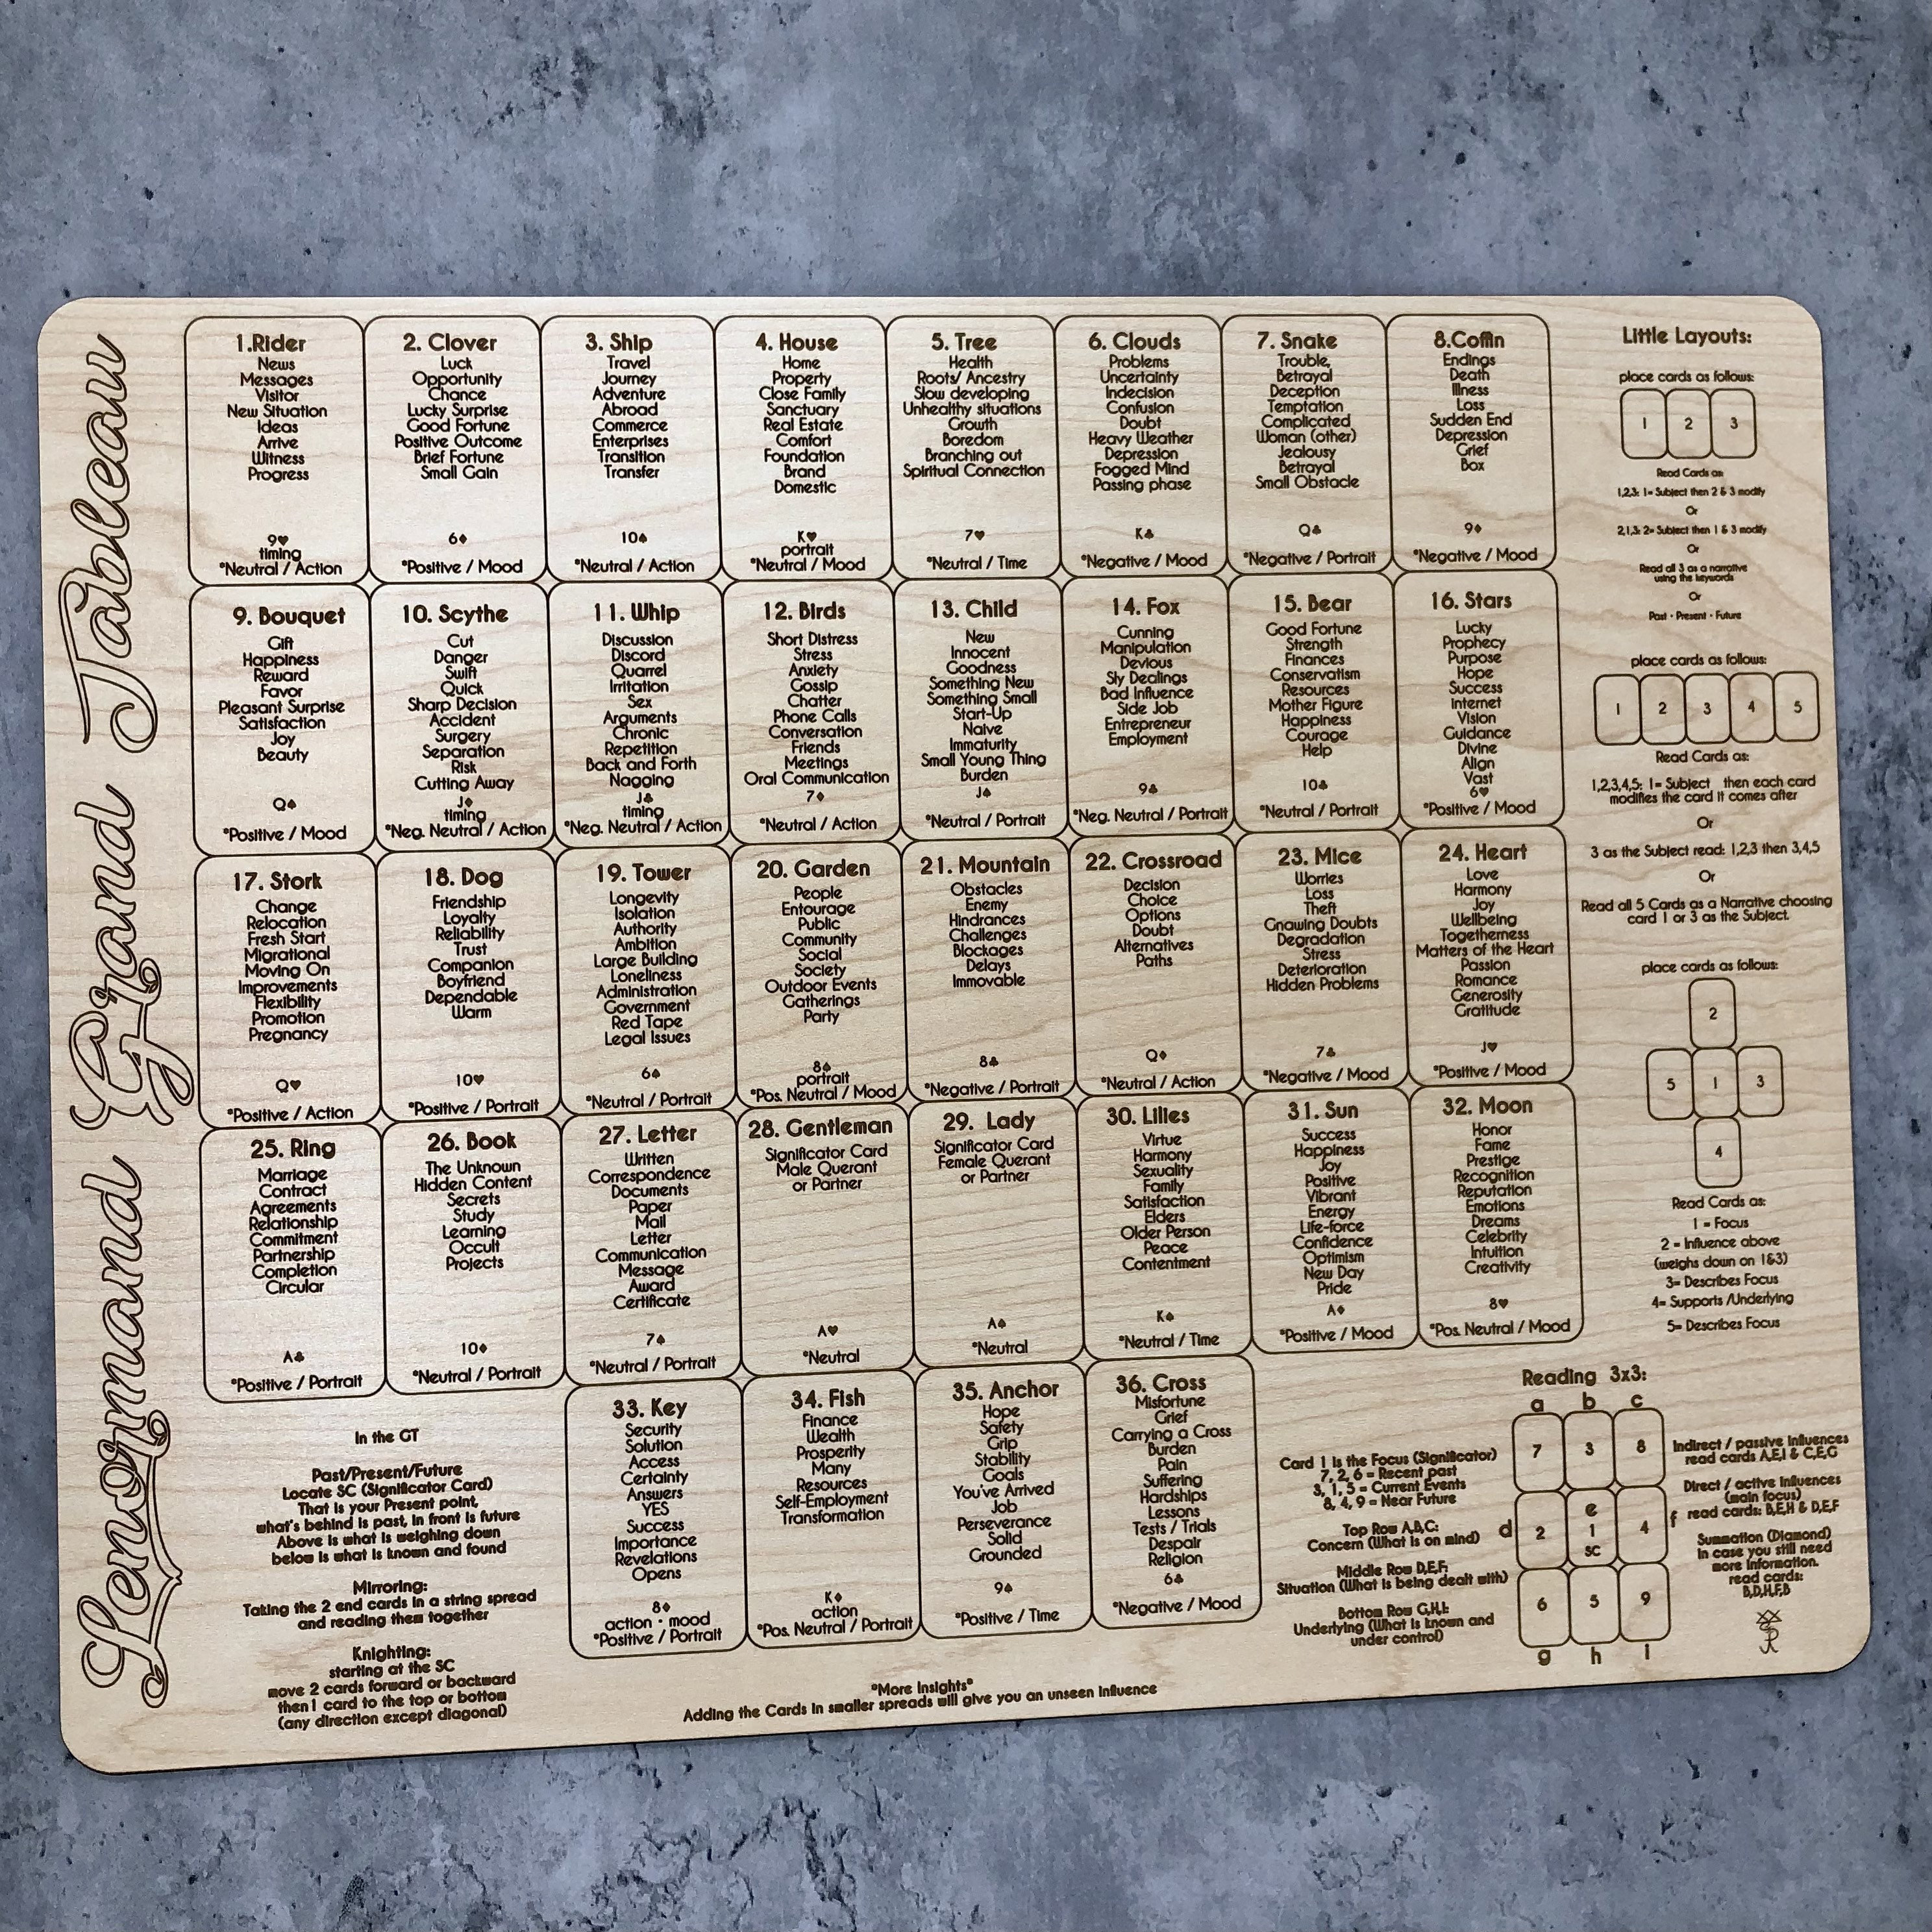 Lenormand Grand Tableau
1.Rider
News
Messages
Visitor
New Situation
Ideas
Arrive
Witness
Progress
9♥
timing
*Neutral / Action
2. Clover
Luck
Opportunity
Chance
Lucky Surprise
Good Fortune
Positive Outcome
Brief Fortune
Small Gain
6♦
*Positive / Mood
3. Ship
Travel
Journey
Adventure
Abroad
Commerce
Enterprises
Transition
Transfer
10♠
*Neutral / Action
4. House
Home
Property
Close Family
Sanctuary
Real Estate
Comfort
Foundation
Brand
Domestic
K♥
portrait
*Neutral / Mood
5. Tree
Health
Roots/ Ancestry
Slow developing
Unhealthy situations
Growth
Boredom
Branching out
Spiritual Connection
7♥
*Neutral / Time
6. Clouds
Problems
Uncertainty
Indecision
Confusion
Doubt
Heavy Weather
Depression
Fogged Mind
Passing phase
K♣
*Negative / Mood
7. Snake
Trouble,
Betrayal
Deception
Temptation
Complicated
Woman (other)
Jealousy
Betrayal
Small Obstacle
Q♣
*Negative / Portrait
8.Coffin
Endings
Death
Illness
Loss
Sudden End
Depression
Grief
Box
9♦
*Negative / Mood
9. Bouquet
Gift
Happiness
Reward
Favor
Pleasant Surprise
Satisfaction
Joy
Beauty
Q♠
*Positive / Mood
10. Scythe
Cut
Danger
Swift
Quick
Sharp Decision
Accident
Surgery
Separation
Risk
Cutting Away
J♦
timing
*Neg. Neutral / Action
11. Whip
Discussion
Discord
Quarrel
Irritation
Sex
Arguments
Chronic
Repetition
Back and Forth
Nagging
J♣
timing
*Neg. Neutral / Action
12. Birds
Short Distress
Stress
Anxiety
Gossip
Chatter
Phone Calls
Conversation
Friends
Meetings
Oral Communication
7♦
*Neutral / Action
13. Child
New
Innocent
Goodness
Something New
Something Small
Start-Up
Naive
Immaturity
Small Young Thing
Burden
J♠
*Neutral / Portrait
14. Fox
Cunning
Manipulation
Devious
Sly Dealings
Bad Influence
Side Job
Entrepreneur
Employment
9♣
*Neg. Neutral / Portrait
15. Bear
Good Fortune
Strength
Finances
Conservatism
Resources
Mother Figure
Happiness
Courage
Help
10♣
*Neutral / Portrait
16. Stars
Lucky
Prophecy
Purpose
Hope
Success
Internet
Vision
Guidance
Divine
Align
Vast
6♥
*Positive / Mood
17. Stork
Change
Relocation
Fresh Start
Migrational
Moving On
Improvements
Flexibility
Promotion
Pregnancy
Q♥
*Positive / Action
18. Dog
Friendship
Loyalty
Reliability
Trust
Companion
Boyfriend
Dependable
Warm
10♥
*Positive / Portrait
19. Tower
Longevity
Isolation
Authority
Ambition
Large Building
Loneliness
Administration
Government
Red Tape
Legal Issues
6♠
*Neutral / Portrait
20. Garden
People
Entourage
Public
Community
Social
Society
Outdoor Events
Gatherings
Party
8♠
portrait
*Pos. Neutral / Mood
21. Mountain
Obstacles
Enemy
Hindrances
Challenges
Blockages
Delays
Immovable
8♣
*Negative / Portrait
22. Crossroad
Decision
Choice
Options
Doubt
Alternatives
Paths
Q♦
*Neutral / Action
23. Mice
Worries
Loss
Theft
Gnawing Doubts
Degradation
Stress
Deterioration
Hidden Problems
7♣
*Negative / Mood
24. Heart
Love
Harmony
Joy
Wellbeing
Togetherness
Matters of the Heart
Passion
Romance
Generosity
Gratitude
J♥
*Positive / Mood
25. Ring
Marriage
Contract
Agreements
Relationship
Commitment
Partnership
Completion
Circular
A♣
*Positive / Portrait
26. Book
The Unknown
Hidden Content
Secrets
Study
Learning
Occult
Projects
10♦
*Neutral / Portrait
27. Letter
Written
Correspondence
Documents
Paper
Mail
Letter
Communication
Message
Award
Certificate
7♠
*Neutral / Portrait
28. Gentleman
Significator Card
Male Querant
or Partner
A♥
*Neutral
29. Lady
Significator Card
Female Querant
or Partner
A♠
*Neutral
30. Lilies
Virtue
Harmony
Sexuality
Family
Satisfaction
Elders
Older Person
Peace
Contentment
K♠
*Neutral / Time
31. Sun
Success
Happiness
Joy
Positive
Vibrant
Energy
Life-force
Confidence
Optimism
New Day
Pride
A♦
*Positive / Mood
32. Moon
Honor
Fame
Prestige
Recognition
Reputation
Emotions
Dreams
Celebrity
Intuition
Creativity
8♥
*Pos. Neutral / Mood
33. Key
Security
Solution
Access
Certainty
Answers
YES
Success
Importance
Revelations
Opens
8♦
action · mood
*Positive / Portrait
34. Fish
Finance
Wealth
Prosperity
Many
Resources
Self-Employment
Transformation
K♦
action
*Pos. Neutral / Portrait
35. Anchor
Hope
Safety
Grip
Stability
Goals
You've Arrived
Job
Perseverance
Solid
Grounded
9♠
*Positive / Time
36. Cross
Misfortune
Grief
Carrying a Cross
Burden
Pain
Suffering
Hardships
Lessons
Tests / Trials
Despair
Religion
6♣
*Negative / Mood
In the GT
Past/Present/Future
Locate SC (Significator Card)
That is your Present point,
what's behind is past, in front is future
Above is what is weighing down
below is what is known and found
Mirroring:
Taking the 2 end cards in a string spread
and reading them together
Knighting:
starting at the SC
move 2 cards forward or backward
then 1 card to the top or bottom
(any direction except diagonal)
*More Insights*
Adding the Cards in smaller spreads will give you an unseen influence
Little Layouts:
place cards as follows:
1 2 3
Read Cards as:
1,2,3: 1= Subject then 2 & 3 modify
Or
2,1,3: 2= Subject then 1 & 3 modify
Or
Read all 3 as a narrative
using the keywords
Or
Past · Present · Future
place cards as follows:
1 2 3 4 5
Read Cards as:
1,2,3,4,5: 1= Subject then each card
modifies the card it comes after
Or
3 as the Subject read: 1,2,3 then 3,4,5
Or
Read all 5 Cards as a Narrative choosing
card 1 or 3 as the Subject.
place cards as follows:
2
5 1 3
4
Read Cards as:
1 = Focus
2 = Influence above
(weighs down on 1&3)
3= Describes Focus
4= Supports /Underlying
5= Describes Focus
Reading 3x3:
a b c
7 3 8
d 2 e 1 SC 4 f
6 5 9
g h i
Card 1 is the Focus (Significator)
7, 2, 6 = Recent past
3, 1, 5 = Current Events
8, 4, 9 = Near Future
Top Row A,B,C:
Concern (What is on mind)
Middle Row D,E,F:
Situation (What is being dealt with)
Bottom Row G,H,I:
Underlying (What is known and
under control)
Indirect / passive influences
read cards A,E,I & C,E,G
Direct / active influences
(main focus)
read cards: B,E,H & D,E,F
Summation (Diamond)
In case you still need
more information.
read cards:
B,D,H,F,B